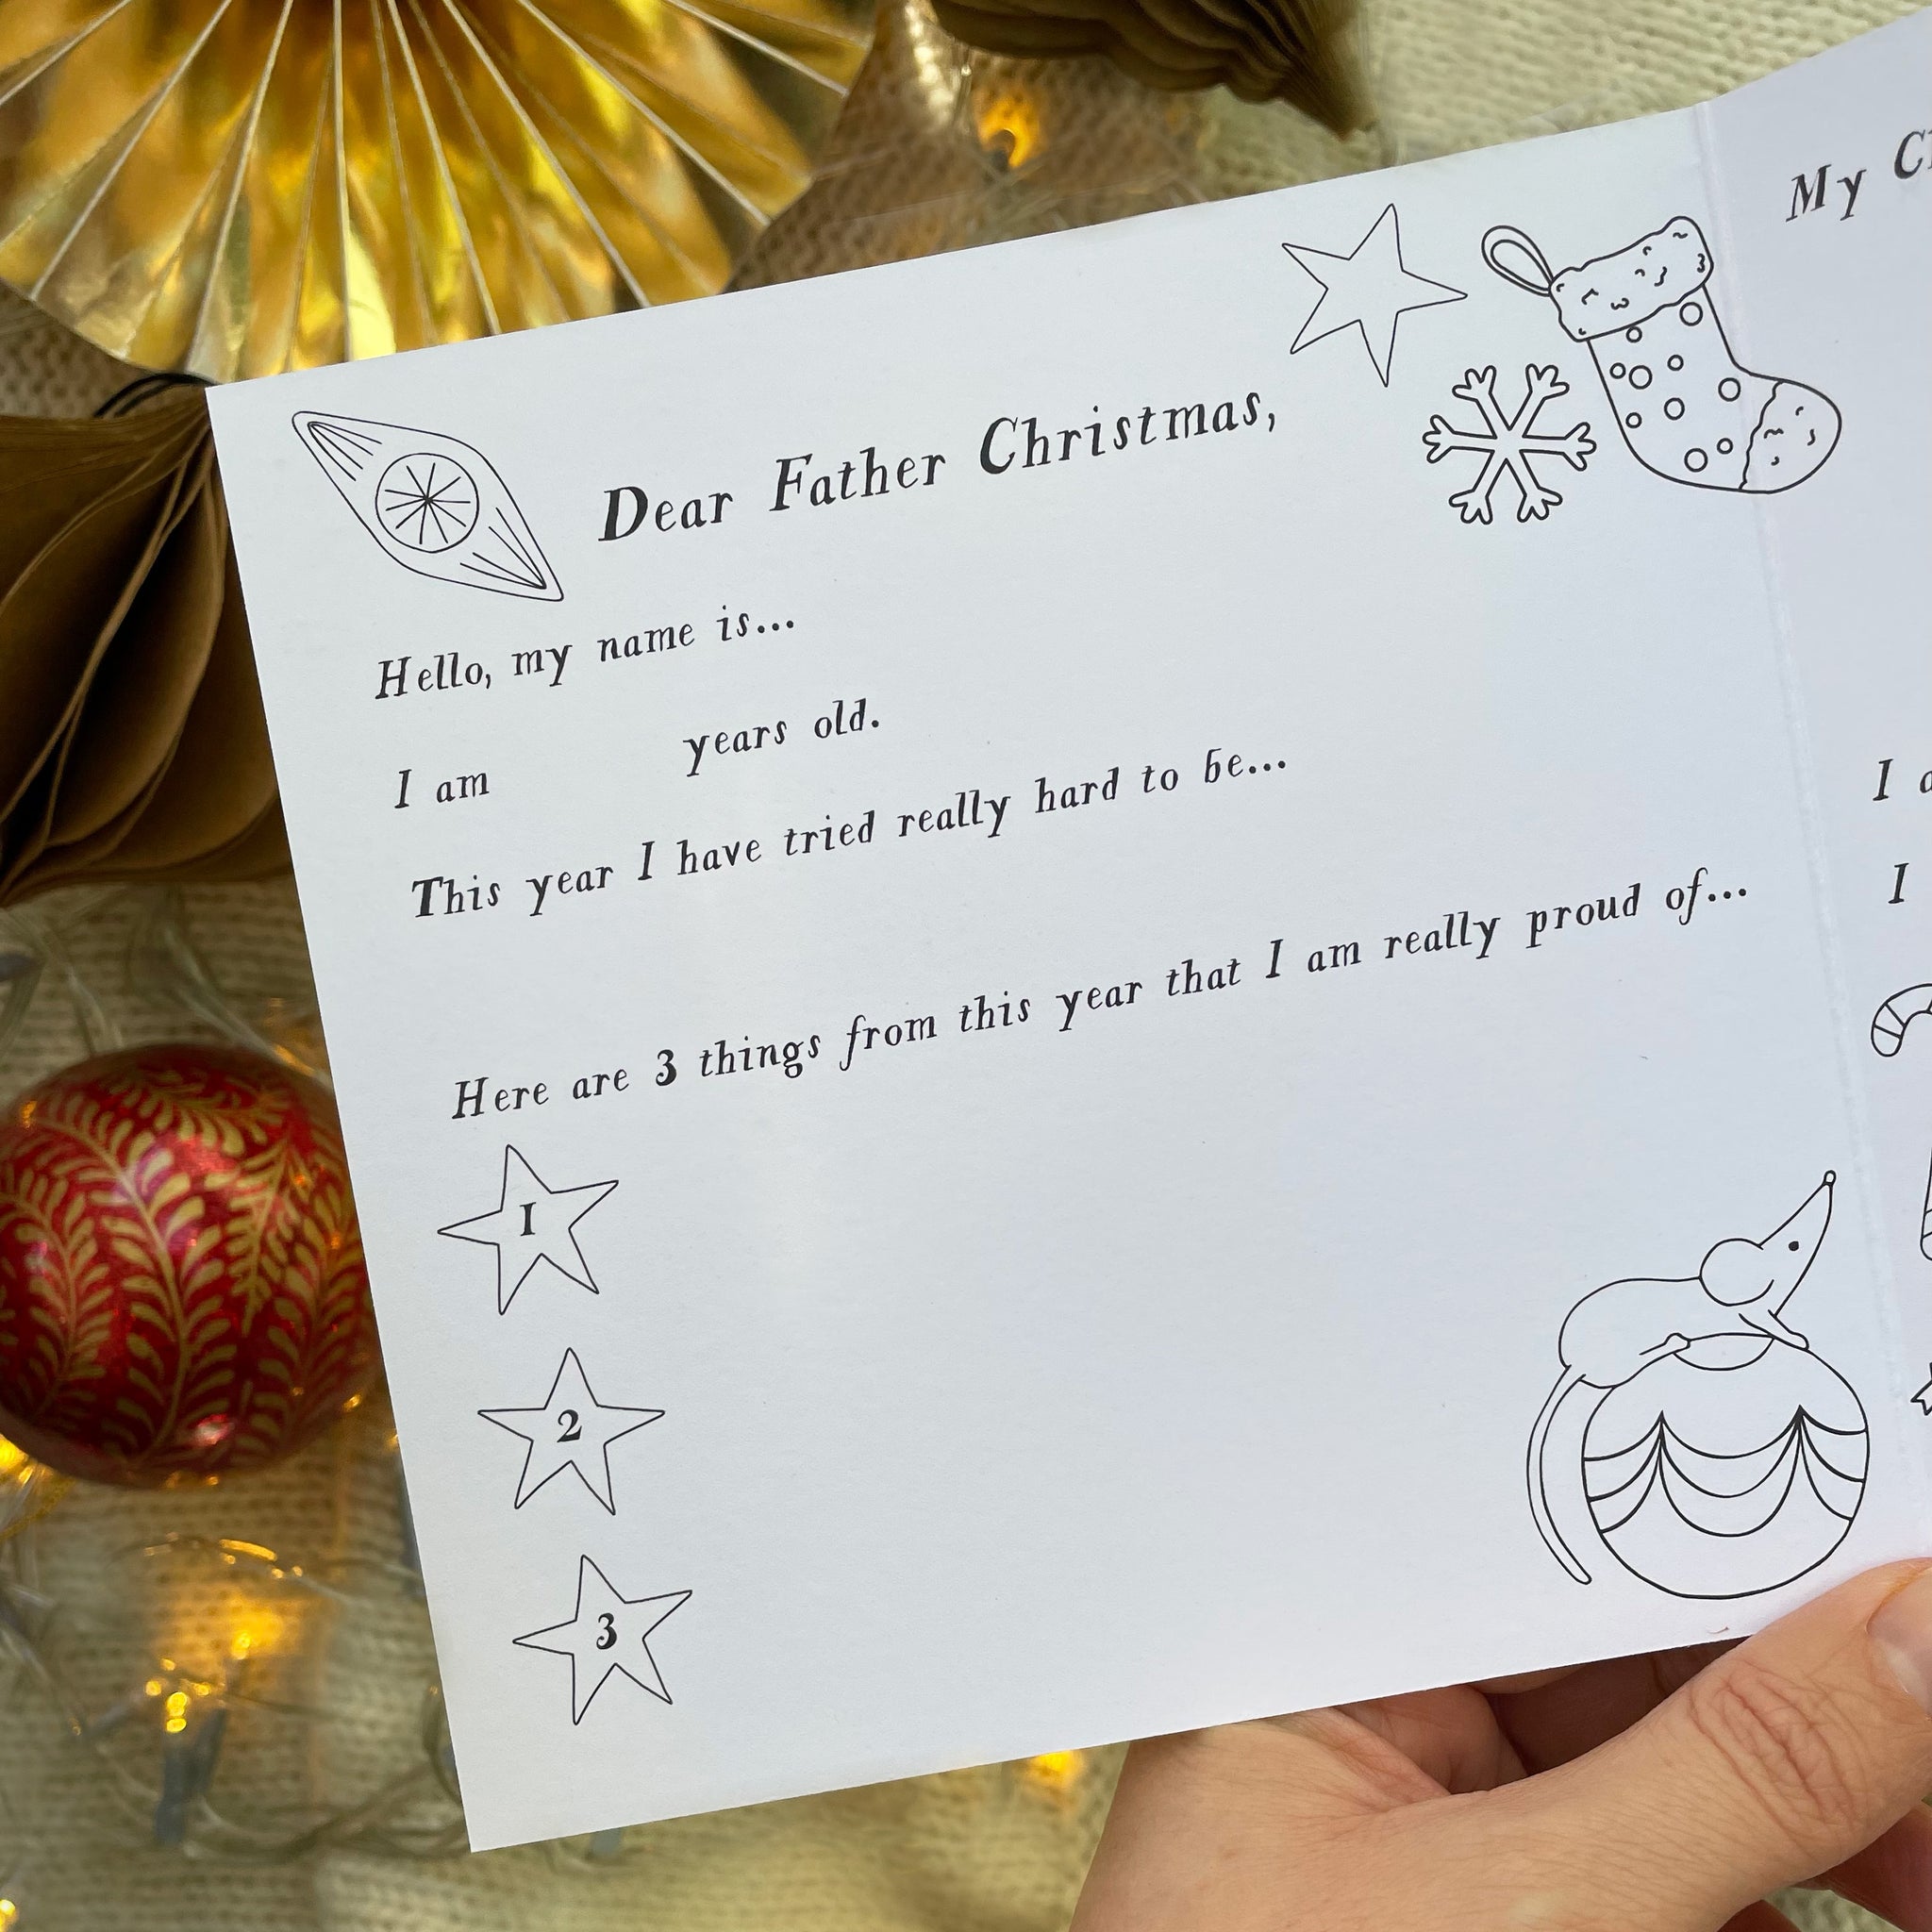 Dear Father Christmas,
Hello, my name is...
I am years old.
This year I have tried really hard to be...
Here are 3 things from this year that I am really proud of...
1
2
3
My
I
I